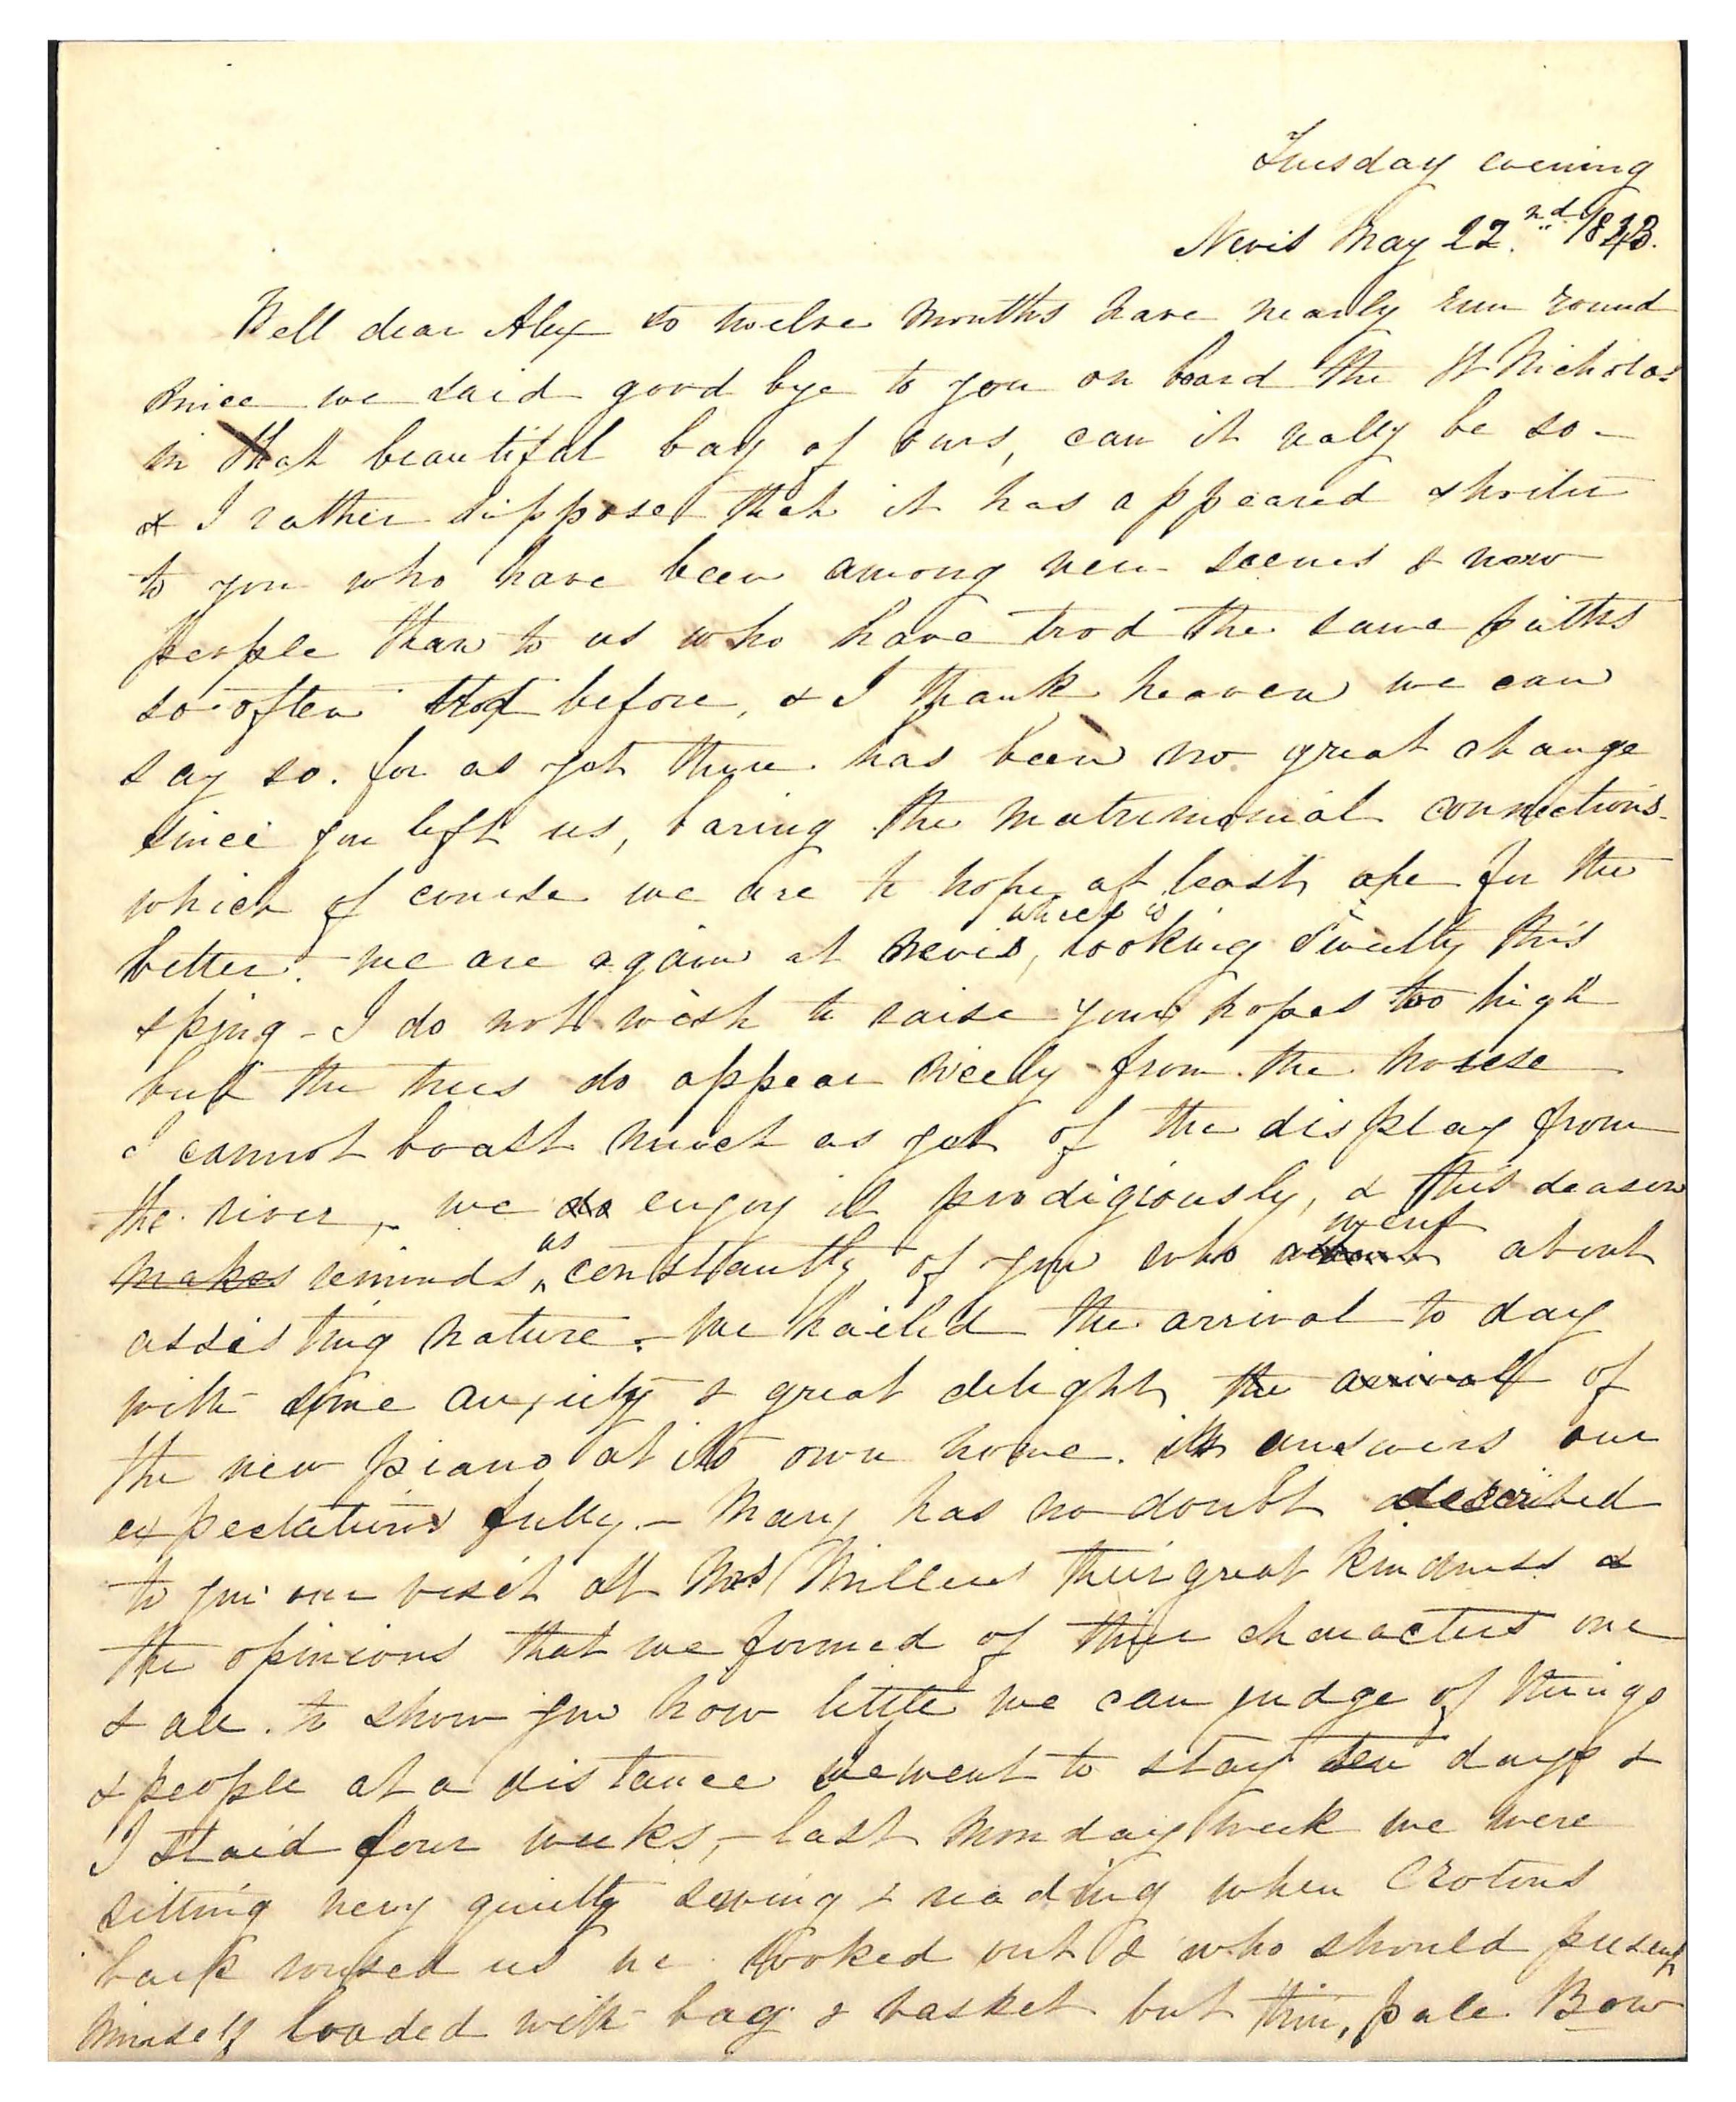 Tuesday evening
Nevis May 22.nd 1843.
Well dear Alex so twelve months have nearly run round
since we said good bye to you on board the St Nicholas
in that beautiful bay of ours, can it really be so -
& I rather suppose that it has appeared shorter
to you who have been among new scenes & new
people than to us who have trod the same paths
so often trod before, & I thank heaven we can
say so. for as yet there has been no great change
since you left us, baring the matrimonial connections
which of course we are to hope at least are for the
better. we are again at Nevis, which is looking sweetly this
spring - I do not wish to raise your hopes too high
but the trees do appear nicely from the house
I cannot boast much as yet of the display from
the river, - we do enjoy it prodigiously, & this season
makes reminds us constantly of you who went about
assisting nature. - We hailed the arrival to day
with some anxiety & great delight the arrival of
the new piano at its own home. it answers our
expectations fully. - Mary has no doubt described
to you our visit at Mrs Millers their great kindness &
the opinions that we formed of their characters one
& all. to show you how little we can judge of things
& people at a distance we went to stay ten days &
I staid four weeks, - last Monday week we were
sitting very quietly sewing & reading when Crotons
bark roused us we looked out & who should present
himself loaded with bag & basket but thin, pale Bow